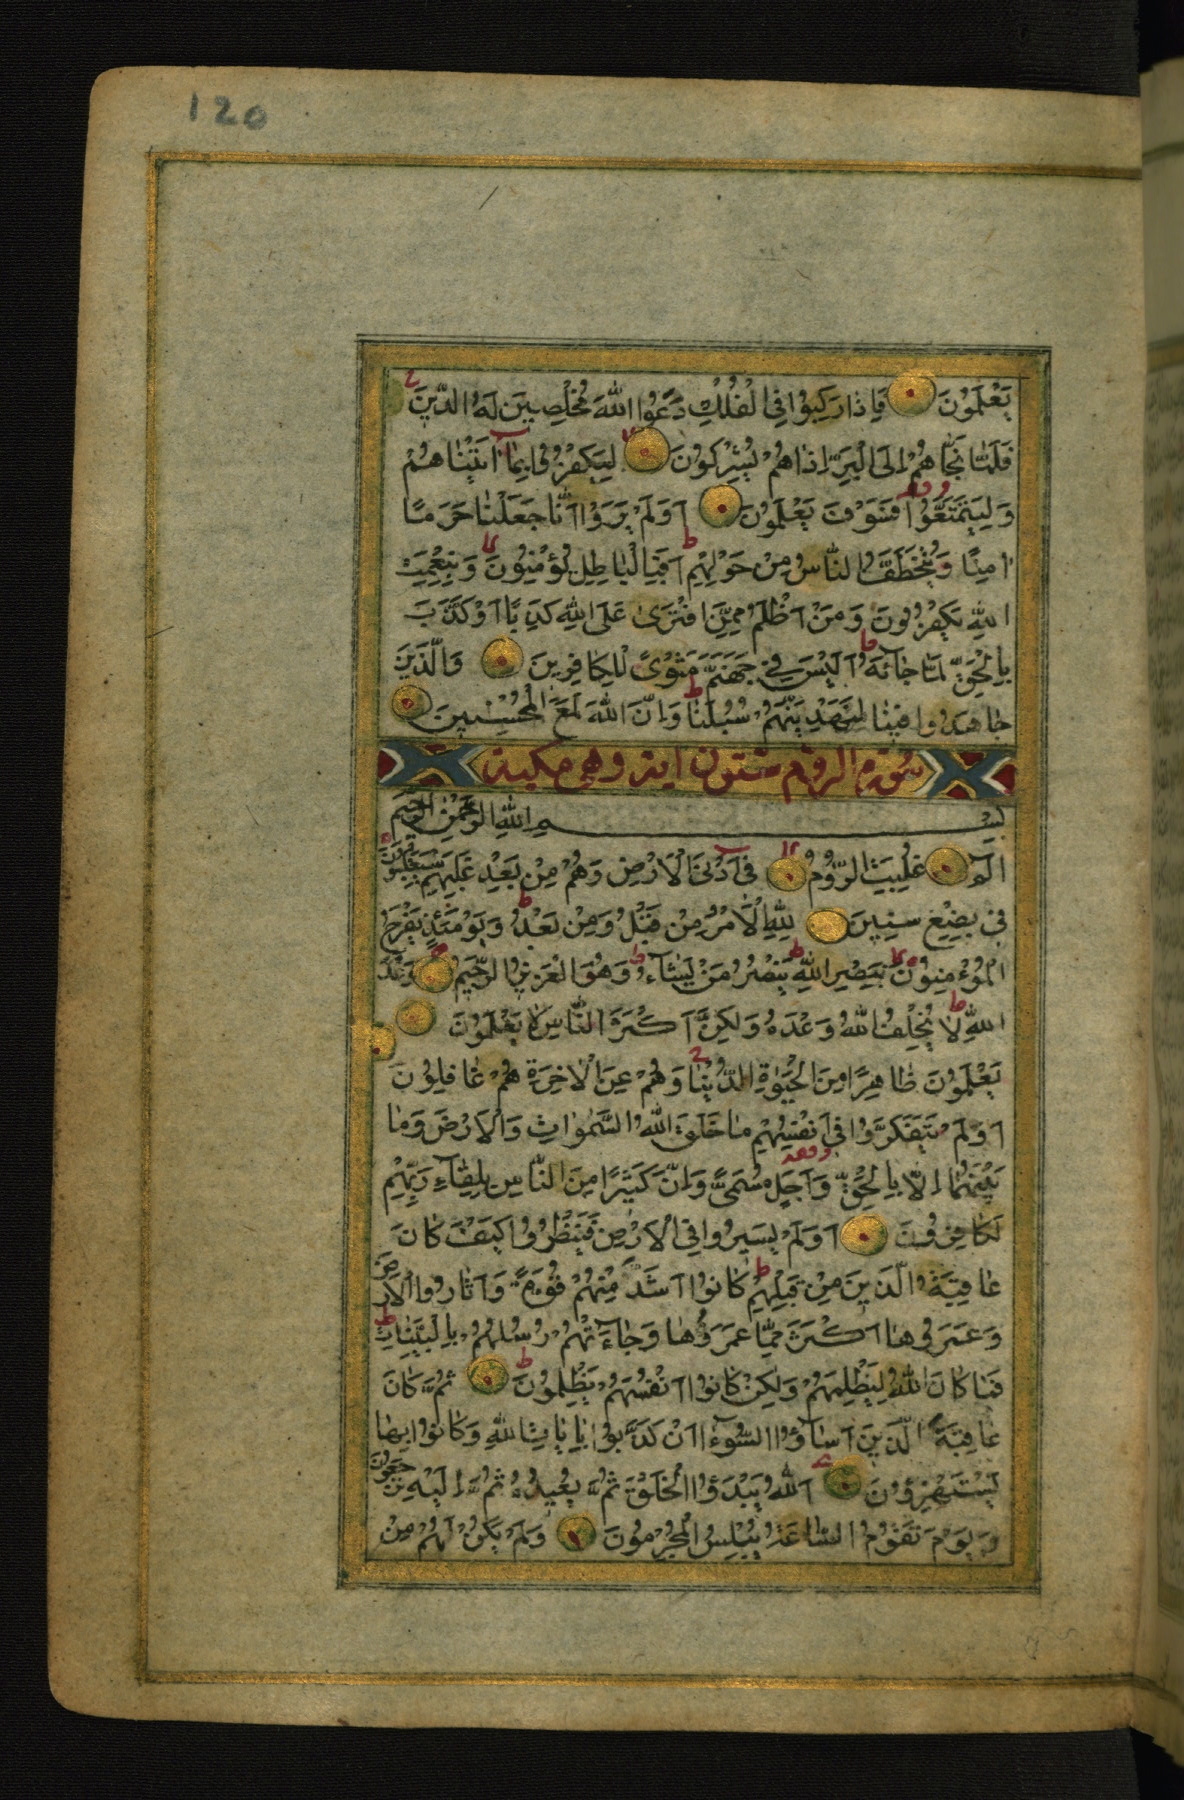 120
يَعْلَمُونَ فَاِذَا رَكِبُوا فِى الْفُلْكِ دَعَوُا اللّٰهَ مُخْلِصِينَ لَهُ الدِّينَ
فَلَمَّا نَجّٰاهُمْ اِلَى الْبَرِّ اِذٰا هُمْ يُشْرِكُونَ لِيَكْفُرُوا بِمٰا اٰتَيْنٰاهُمْ
وَلِيَتَمَتَّعُوا فَسَوْفَ يَعْلَمُونَ اَوَلَمْ يَرَوْا اَنّٰا جَعَلْنٰا حَرَمًا
اٰمِنًا وَيُتَخَطَّفُ النّٰاسُ مِنْ حَوْلِهِمْ اَفَبِالْبٰاطِلِ يُؤْمِنُونَ وَبِنِعْمَتِ
اللّٰهِ يَكْفُرُونَ وَمَنْ اَظْلَمُ مِمَّنِ افْتَرٰى عَلَى اللّٰهِ كَذِبًا اَوْ كَذَّبَ
بِالْحَقِّ لَمّٰا جٰائَهُ اَلَيْسَ فِى جَهَنَّمَ مَثْوًى لِلْكٰافِرِينَ وَالَّذِينَ
جٰاهَدُوا فِينٰا لَنَهْدِيَنَّهُمْ سُبُلَنٰا وَاِنَّ اللّٰهَ لَمَعَ الْمُحْسِنِينَ
سورة الروم ستون اية وهى مكية
بسم الله الرحمن الرحيم
الٓمٓ غُلِبَتِ الرُّومُ فِى اَدْنَى الْاَرْضِ وَهُمْ مِنْ بَعْدِ غَلَبِهِمْ سَيَغْلِبُونَ
فِى بِضْعِ سِنِينَ لِلّٰهِ الْاَمْرُ مِنْ قَبْلُ وَمِنْ بَعْدُ وَيَوْمَئِذٍ يَفْرَحُ
الْمُؤْمِنُونَ بِنَصْرِ اللّٰهِ يَنْصُرُ مَنْ يَشٰآءُ وَهُوَ الْعَزِيزُ الرَّحِيمُ وَعْدَ
اللّٰهِ لٰا يُخْلِفُ اللّٰهُ وَعْدَهُ وَلٰكِنَّ اَكْثَرَ النّٰاسِ لٰا يَعْلَمُونَ
يَعْلَمُونَ ظٰاهِرًا مِنَ الْحَيٰوةِ الدُّنْيٰا وَهُمْ عَنِ الْاٰخِرَةِ هُمْ غٰافِلُونَ
اَوَلَمْ يَتَفَكَّرُوا فِى اَنْفُسِهِمْ مٰا خَلَقَ اللّٰهُ السَّمٰوٰاتِ وَالْاَرْضَ وَمٰا
بَيْنَهُمٰا اِلّٰا بِالْحَقِّ وَاَجَلٍ مُسَمًّى وَاِنَّ كَثِيرًا مِنَ النّٰاسِ بِلِقٰآءِ رَبِّهِمْ
لَكٰافِرُونَ اَوَلَمْ يَسِيرُوا فِى الْاَرْضِ فَيَنْظُرُوا كَيْفَ كٰانَ
عٰاقِبَةُ الَّذِينَ مِنْ قَبْلِهِمْ كٰانُوا اَشَدَّ مِنْهُمْ قُوَّةً وَاَثٰارُوا الْاَرْضَ
وَعَمَرُوهٰا اَكْثَرَ مِمّٰا عَمَرُوهٰا وَجٰاءَتْهُمْ رُسُلُهُمْ بِالْبَيِّنٰاتِ
فَمٰا كٰانَ اللّٰهُ لِيَظْلِمَهُمْ وَلٰكِنْ كٰانُوا اَنْفُسَهُمْ يَظْلِمُونَ ثُمَّ كٰانَ
عٰاقِبَةَ الَّذِينَ اَسٰآؤُا السُّوءٰا اَنْ كَذَّبُوا بِاٰيٰاتِ اللّٰهِ وَكٰانُوا بِهٰا
يَسْتَهْزِؤُنَ اَللّٰهُ يَبْدَؤُا الْخَلْقَ ثُمَّ يُعِيدُهُ ثُمَّ اِلَيْهِ تُرْجَعُونَ
وَيَوْمَ تَقُومُ السّٰاعَةُ يُبْلِسُ الْمُجْرِمُونَ وَلَمْ يَكُنْ لَهُمْ مِنْ